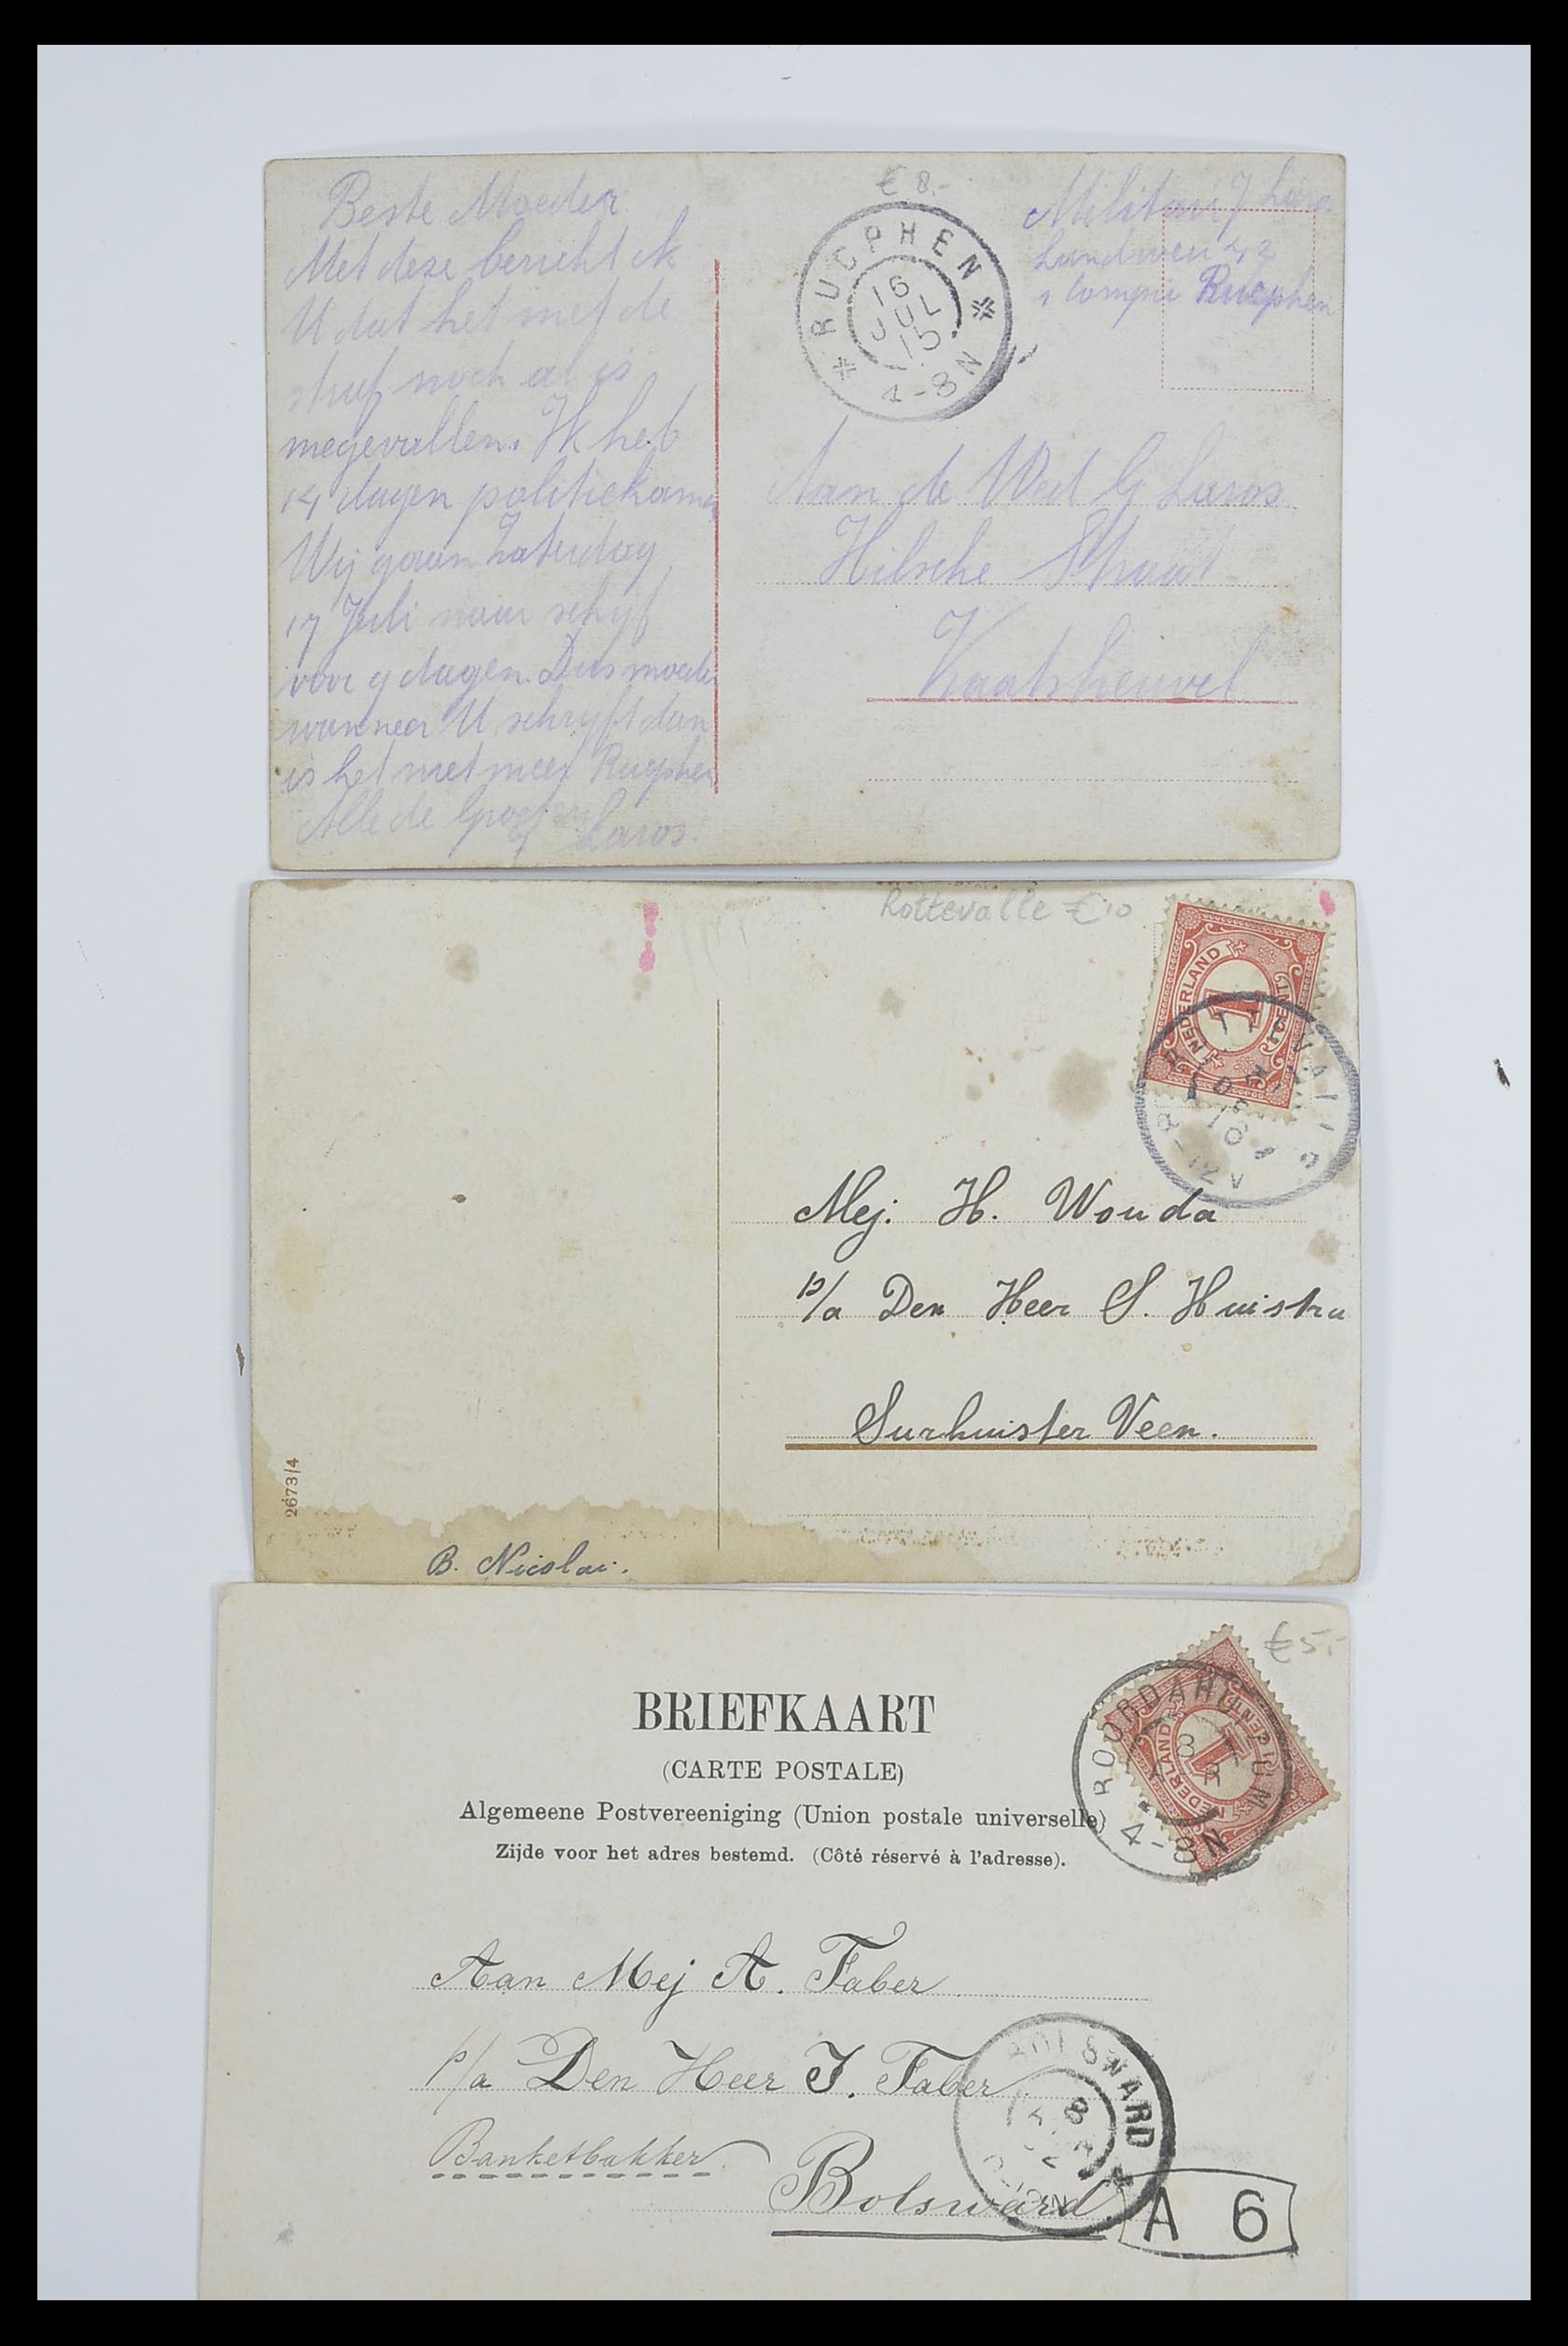 € 8.-
RUCPHEN
16
JUL
15
4-8N
Landweer 42
Rucphen
Beste Moeder
Met deze bericht ik
U dat het met de
straf noch al is
megevallen. Ik heb
14 dagen politiekamer
Wij gaan Zaterdag
17 Juli naar schijf
voor 9 dagen. Dus moeder
wanneer U schrijft dan
is het niet meer Rucphen
Alle de Groeten
J Laros.
Aan de Wed G Laros
Hilsche Straat
Kaatsheuvel
Rottevalle €10
NEDERLAND
1
CENT
Mej. H. Wouda
p/a Den Heer S. Huistra
Surhuister Veen.
2673/4
B. Nicolai.
€5,-
BRIEFKAART
(CARTE POSTALE)
Algemeene Postvereeniging (Union postale universelle)
Zijde voor het adres bestemd. (Côté réservé à l'adresse).
NEDERLAND
1
CENT
ROORDAHUIZUM
4-8N
Aan Mej A. Faber
p/a Den Heer J. Faber
Banketbakker.
Bolsward.
BOLSWARD
A 6